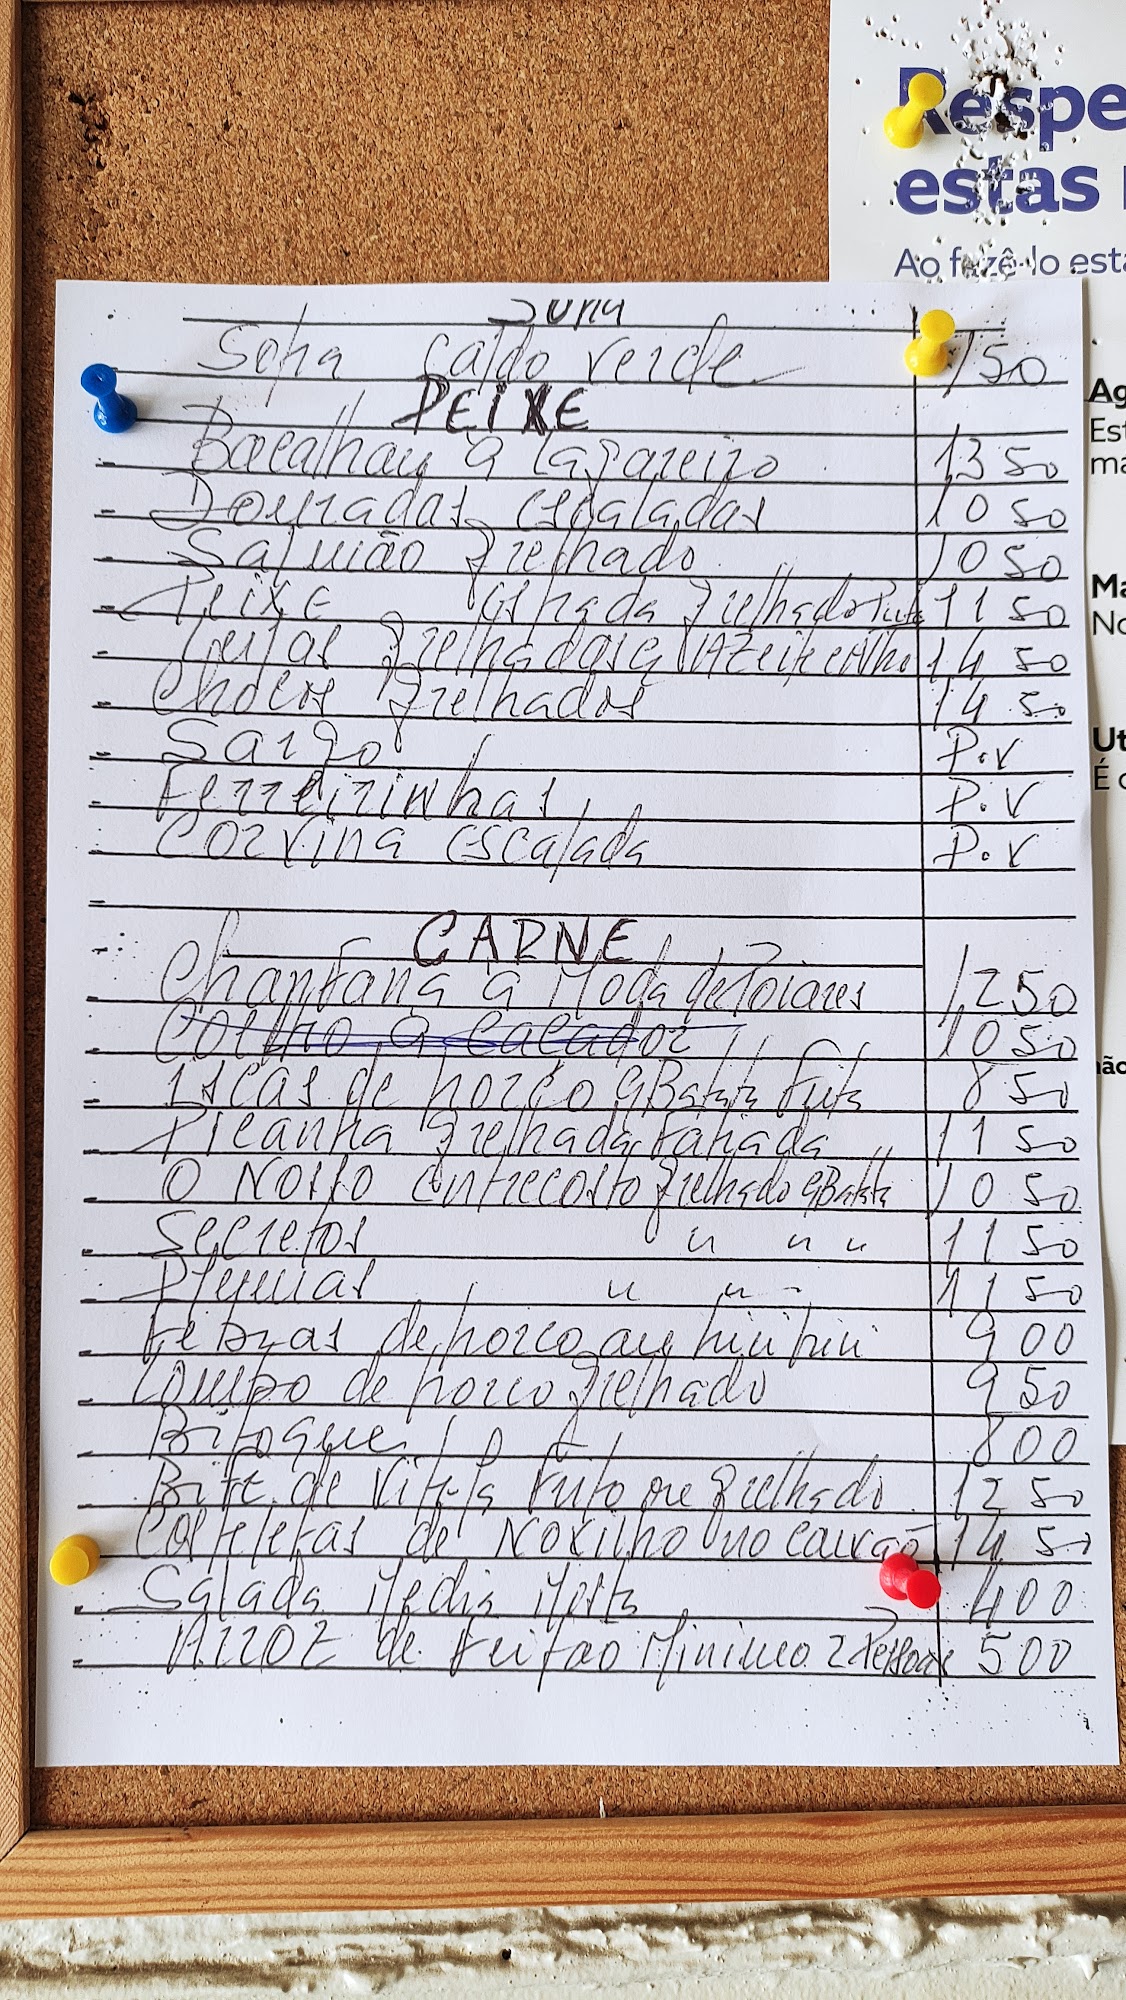 Respe
estas
Ao fazê-lo esta
Sopa caldo verde 1 50
PEIXE
Bacalhau à lagareiro 13 50
Douradas escaladas 10 50
Salmão grelhado 10 50
Peixe Espada grelhado 11 50
Lulas grelhadas c/ Azeite e Alho 14 50
Chocos grelhados 14 50
Sargo P.V
Ferreirinhas P.V
Corvina escalada P.V
CARNE
Chanfana à Moda de Poiares 12 50
Coelho à Caçador 10 50
Iscas de porco c/ Batata Frita 8 50
Picanha grelhada Fatiada 11 50
O Nosso Entrecosto grelhado c/ Batata 10 50
Secretos " " " 11 50
Plumas " " " 11 50
Febras de porco ou piri piri 9 00
Lombo de porco grelhado 9 50
Bitoque 8 00
Bife de Vitela Frito ou grelhado 12 50
Costeletas de Novilho no carvão 14 50
Salada Media Mista 4 00
Arroz de Feijão Minimo 2 Pessoas 5 00
Ag
Est
má
Ma
No
Ut
É
não